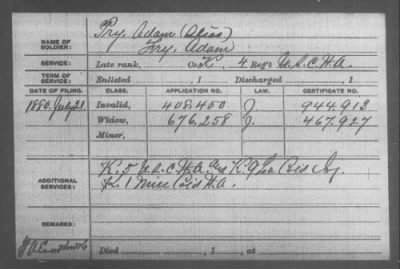 NAME OF SOLDIER: Pry, Adam (Alias)
Fry, Adam
SERVICE: Late rank, Cook, 4 Reg't U.S.C.H.A.
TERM OF SERVICE: Enlisted , 1 Discharged , 1
DATE OF FILING. CLASS. APPLICATION NO. LAW. CERTIFICATE NO.
1880. July 21. Invalid, 408.450 J. 944.913
Widow, 676.258 J. 467.927
Minor,
ADDITIONAL SERVICES: K. 5 U.S.C.H.A. and K 9 La. Col'd Inf.
K. 1 Miss Col'd H.A.
REMARKS:
Died , 1 , at